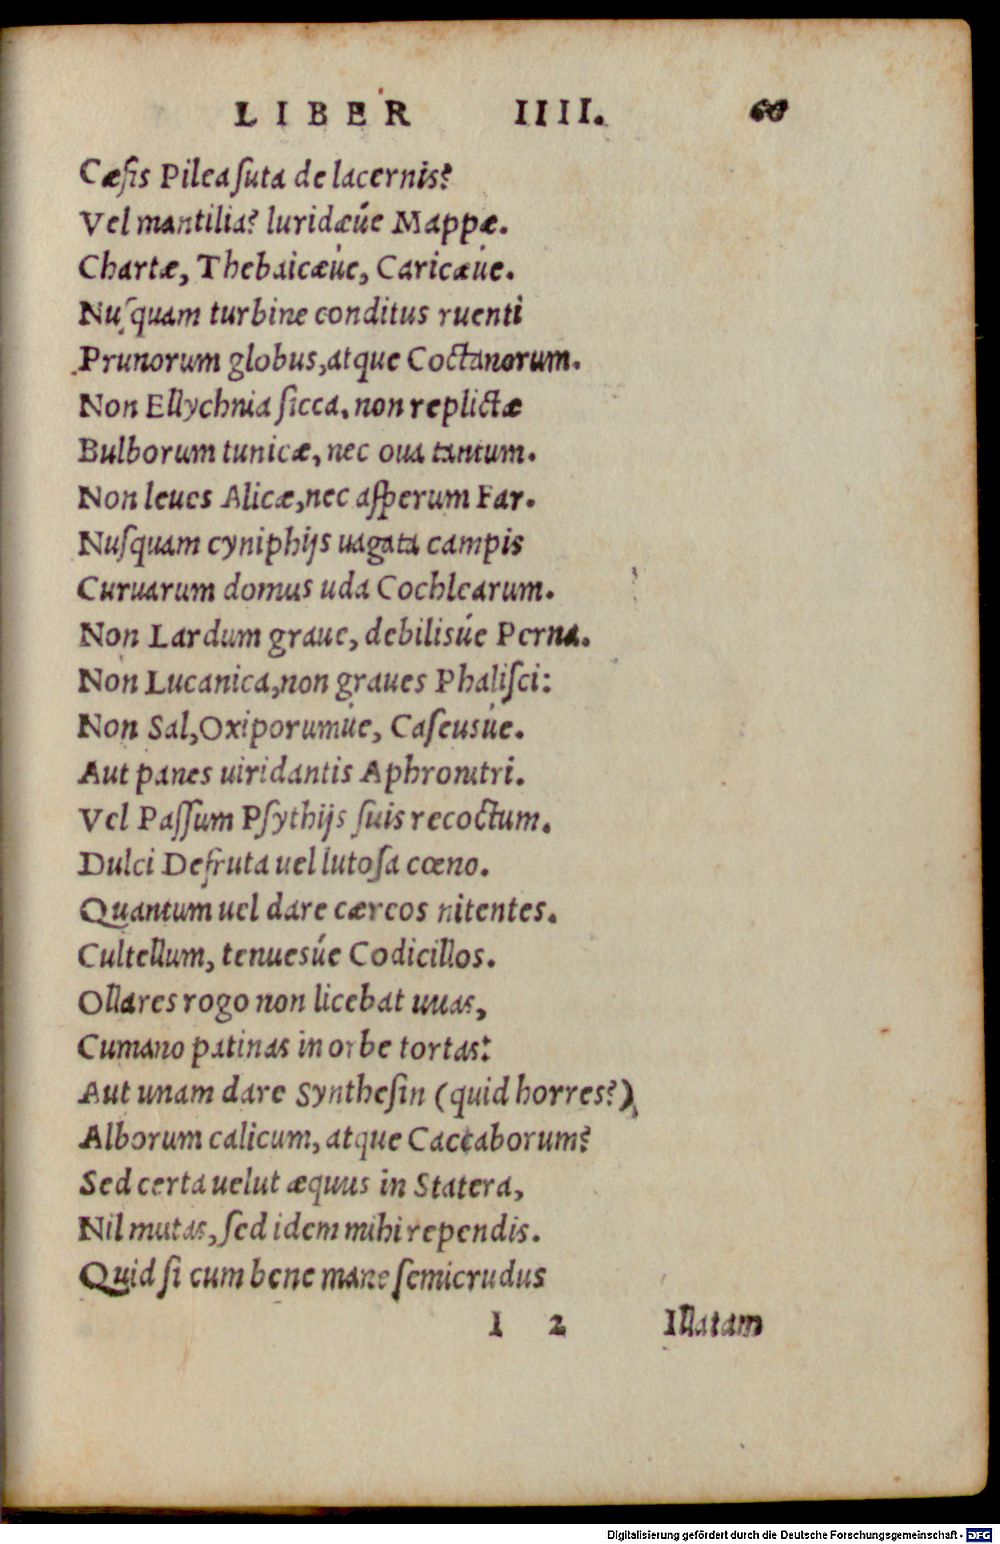 LIBER IIII. 60
Cæſis Pilea ſuta de lacernis?
Vel mantilia? luridæúe Mappæ.
Chartæ, Thebaicæúe, Caricæúe.
Nuſquam turbine conditus ruenti
Prunorum globus, atque Coctanorum.
Non Ellychnia ſicca, non replictæ
Bulborum tunicæ, nec oua tantum.
Non leues Alicæ, nec aſperum Far.
Nuſquam cyniphijs uagata campis
Curuarum domus uda Cochlearum.
Non Lardum graue, debilisúe Perna.
Non Lucanica, non graues Phaliſci:
Non Sal, Oxiporumúe, Caſeusúe.
Aut panes uiridantis Aphronitri.
Vel Paſſum Pſythijs ſuis recoctum.
Dulci Defruta uel lutoſa cœno.
Quantum uel dare cæreos nitentes.
Cultellum, tenuesúe Codicillos.
Ollares rogo non licebat uuas,
Cumano patinas in orbe tortas:
Aut unam dare Syntheſin (quid horres?)
Alborum calicum, atque Caccaborum?
Sed certa uelut æquus in Statera,
Nil mutas, ſed idem mihi rependis.
Quid ſi cum bene mane ſemicrudus
I 2 Illatam
Digitalisierung gefördert durch die Deutsche Forschungsgemeinschaft - DFG